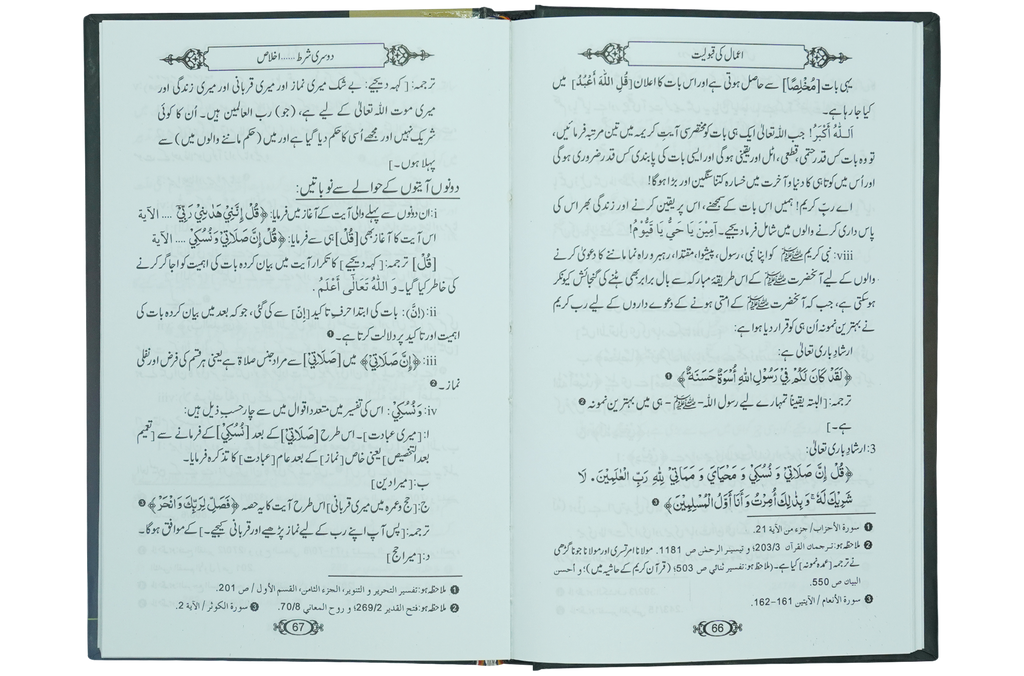 اعمال کی قبولیت
یہی بات [مُخْلِصًا] سے حاصل ہوتی ہے اور اس بات کا اعلان [قُلِ اللّٰهَ أَعْبُدُ] میں
کیا جا رہا ہے۔
اَللّٰهُ أَكْبَرُ! جب اللہ تعالیٰ ایک ہی بات کو مختصر سی آیت کریمہ میں تین مرتبہ فرمائیں،
تو وہ بات کس قدر حتمی، قطعی، اٹل اور یقینی ہوگی اور ایسی بات کی پابندی کس قدر ضروری ہوگی
اور اُس میں کوتاہی کا دنیا و آخرت میں خسارہ کتنا سنگین اور بڑا ہوگا!
اے ربّ کریم! ہمیں اس بات کے سمجھنے، اس پر یقین کرنے اور زندگی بھر اس کی
پاس داری کرنے والوں میں شامل فرما دیجیے۔ آمِيْنَ يَا حَيُّ يَا قَيُّوْمُ!
viii: نبی کریم ﷺ کو اپنا نبی، رسول، پیشوا، مقتدا، رہبر و راہ نما ماننے کا دعویٰ کرنے
والوں کے لیے آنحضرت ﷺ کے اس طریقۂ مبارکہ سے بال برابر بھی ہٹنے کی گنجائش کیونکر
ہوسکتی ہے، جب کہ آنحضرت ﷺ کے امتی ہونے کے دعوے داروں کے لیے رب کریم
نے بہترین نمونہ اُن ہی کو قرار دیا ہوا ہے:
ارشادِ باری تعالیٰ ہے:
﴿لَقَدْ كَانَ لَكُمْ فِيْ رَسُوْلِ اللّٰهِ أُسْوَةٌ حَسَنَةٌ﴾ ❶
ترجمہ: [البتہ یقیناً تمہارے لیے رسول اللہ- ﷺ- ہی میں بہترین نمونہ ❷
ہے۔]
3: ارشادِ باری تعالیٰ:
﴿قُلْ إِنَّ صَلَاتِيْ وَ نُسُكِيْ وَ مَحْيَايَ وَ مَمَاتِيْ لِلّٰهِ رَبِّ الْعٰلَمِيْنَ. لَا
شَرِيْكَ لَهٗ ۚ وَبِذٰلِكَ أُمِرْتُ وَ أَنَا أَوَّلُ الْمُسْلِمِيْنَ﴾ ❸
❶ سورة الأحزاب/ جزء من الآية 21.
❷ ملاحظہ ہو: ترجمان القرآن 203/3؛ و تیسیر الرحمٰن ص 1181. مولانا امرتسری اور مولانا جونا گڑھی
نے ترجمہ [عمدہ نمونہ] کیا ہے۔ (ملاحظہ ہو: تفسیر ثنائی ص 503؛ (قرآن کریم کے حاشیہ میں)؛ و أحسن
البیان ص 550.
❸ سورة الأنعام/ الآيتين 161-162.
66
دوسری شرط ...... اخلاص
ترجمہ: [کہہ دیجیے: بے شک میری نماز اور میری قربانی اور میری زندگی اور
میری موت اللہ تعالیٰ کے لیے ہے، (جو) رب العالمین ہیں۔ اُن کا کوئی
شریک نہیں اور مجھے اُسی کا حکم دیا گیا ہے اور میں (حکم ماننے والوں میں) سے
پہلا ہوں۔]
دونوں آیتوں کے حوالے سے نو باتیں:
i: ان دونوں سے پہلے والی آیت کے آغاز میں فرمایا: ﴿قُلْ إِنَّنِيْ هَدٰىنِيْ رَبِّيْ .... الآية
اس آیت کا آغاز بھی [قُلْ] ہی سے فرمایا: ﴿قُلْ إِنَّ صَلَاتِيْ وَنُسُكِيْ .... الآية
[قُلْ] ترجمہ: [کہہ دیجیے] کا تکرار آیت میں بیان کردہ بات کی اہمیت کو اجاگر کرنے
کی خاطر کیا گیا۔ وَ اللّٰهُ تَعَالٰى أَعْلَمُ.
ii: (إِنَّ): بات کی ابتدا حرفِ تاکید [إِنَّ] سے کی گئی، جو کہ بعد میں بیان کردہ بات کی
اہمیت اور تاکید پر دلالت کرتا ہے۔ ❶
iii: ﴿إِنَّ صَلَاتِيْ﴾ میں [صَلَاتِيْ] سے مراد جنسِ صلاۃ ہے یعنی ہر قسم کی فرض اور نفلی
نماز۔ ❷
iv: وَنُسُكِيْ: اس کی تفسیر میں متعدد اقوال میں سے چار حسبِ ذیل ہیں:
ا: [میری عبادت]۔ اس طرح [صَلَاتِيْ] کے بعد [نُسُكِيْ] کے فرمانے سے [تعمیم
بعد التخصیص] یعنی خاص [نماز] کے بعد عام [عبادت] کا تذکرہ فرمایا۔
ب: [میرا دین]
ج: [حج و عمرہ میں میری قربانی] اس طرح آیت کا یہ حصہ ﴿فَصَلِّ لِرَبِّكَ وَانْحَرْ﴾ ❸
ترجمہ: [پس آپ اپنے رب کے لیے نماز پڑھیے اور قربانی کیجیے۔] کے موافق ہوگا۔
د: [میرا حج]
❶ ملاحظہ ہو: تفسير التحرير و التنوير، الجزء الثامن، القسم الأول/ ص 201.
❷ ملاحظہ ہو: فتح القدير 269/2؛ و روح المعاني 70/8. ❸ سورة الكوثر/ الآية 2.
67